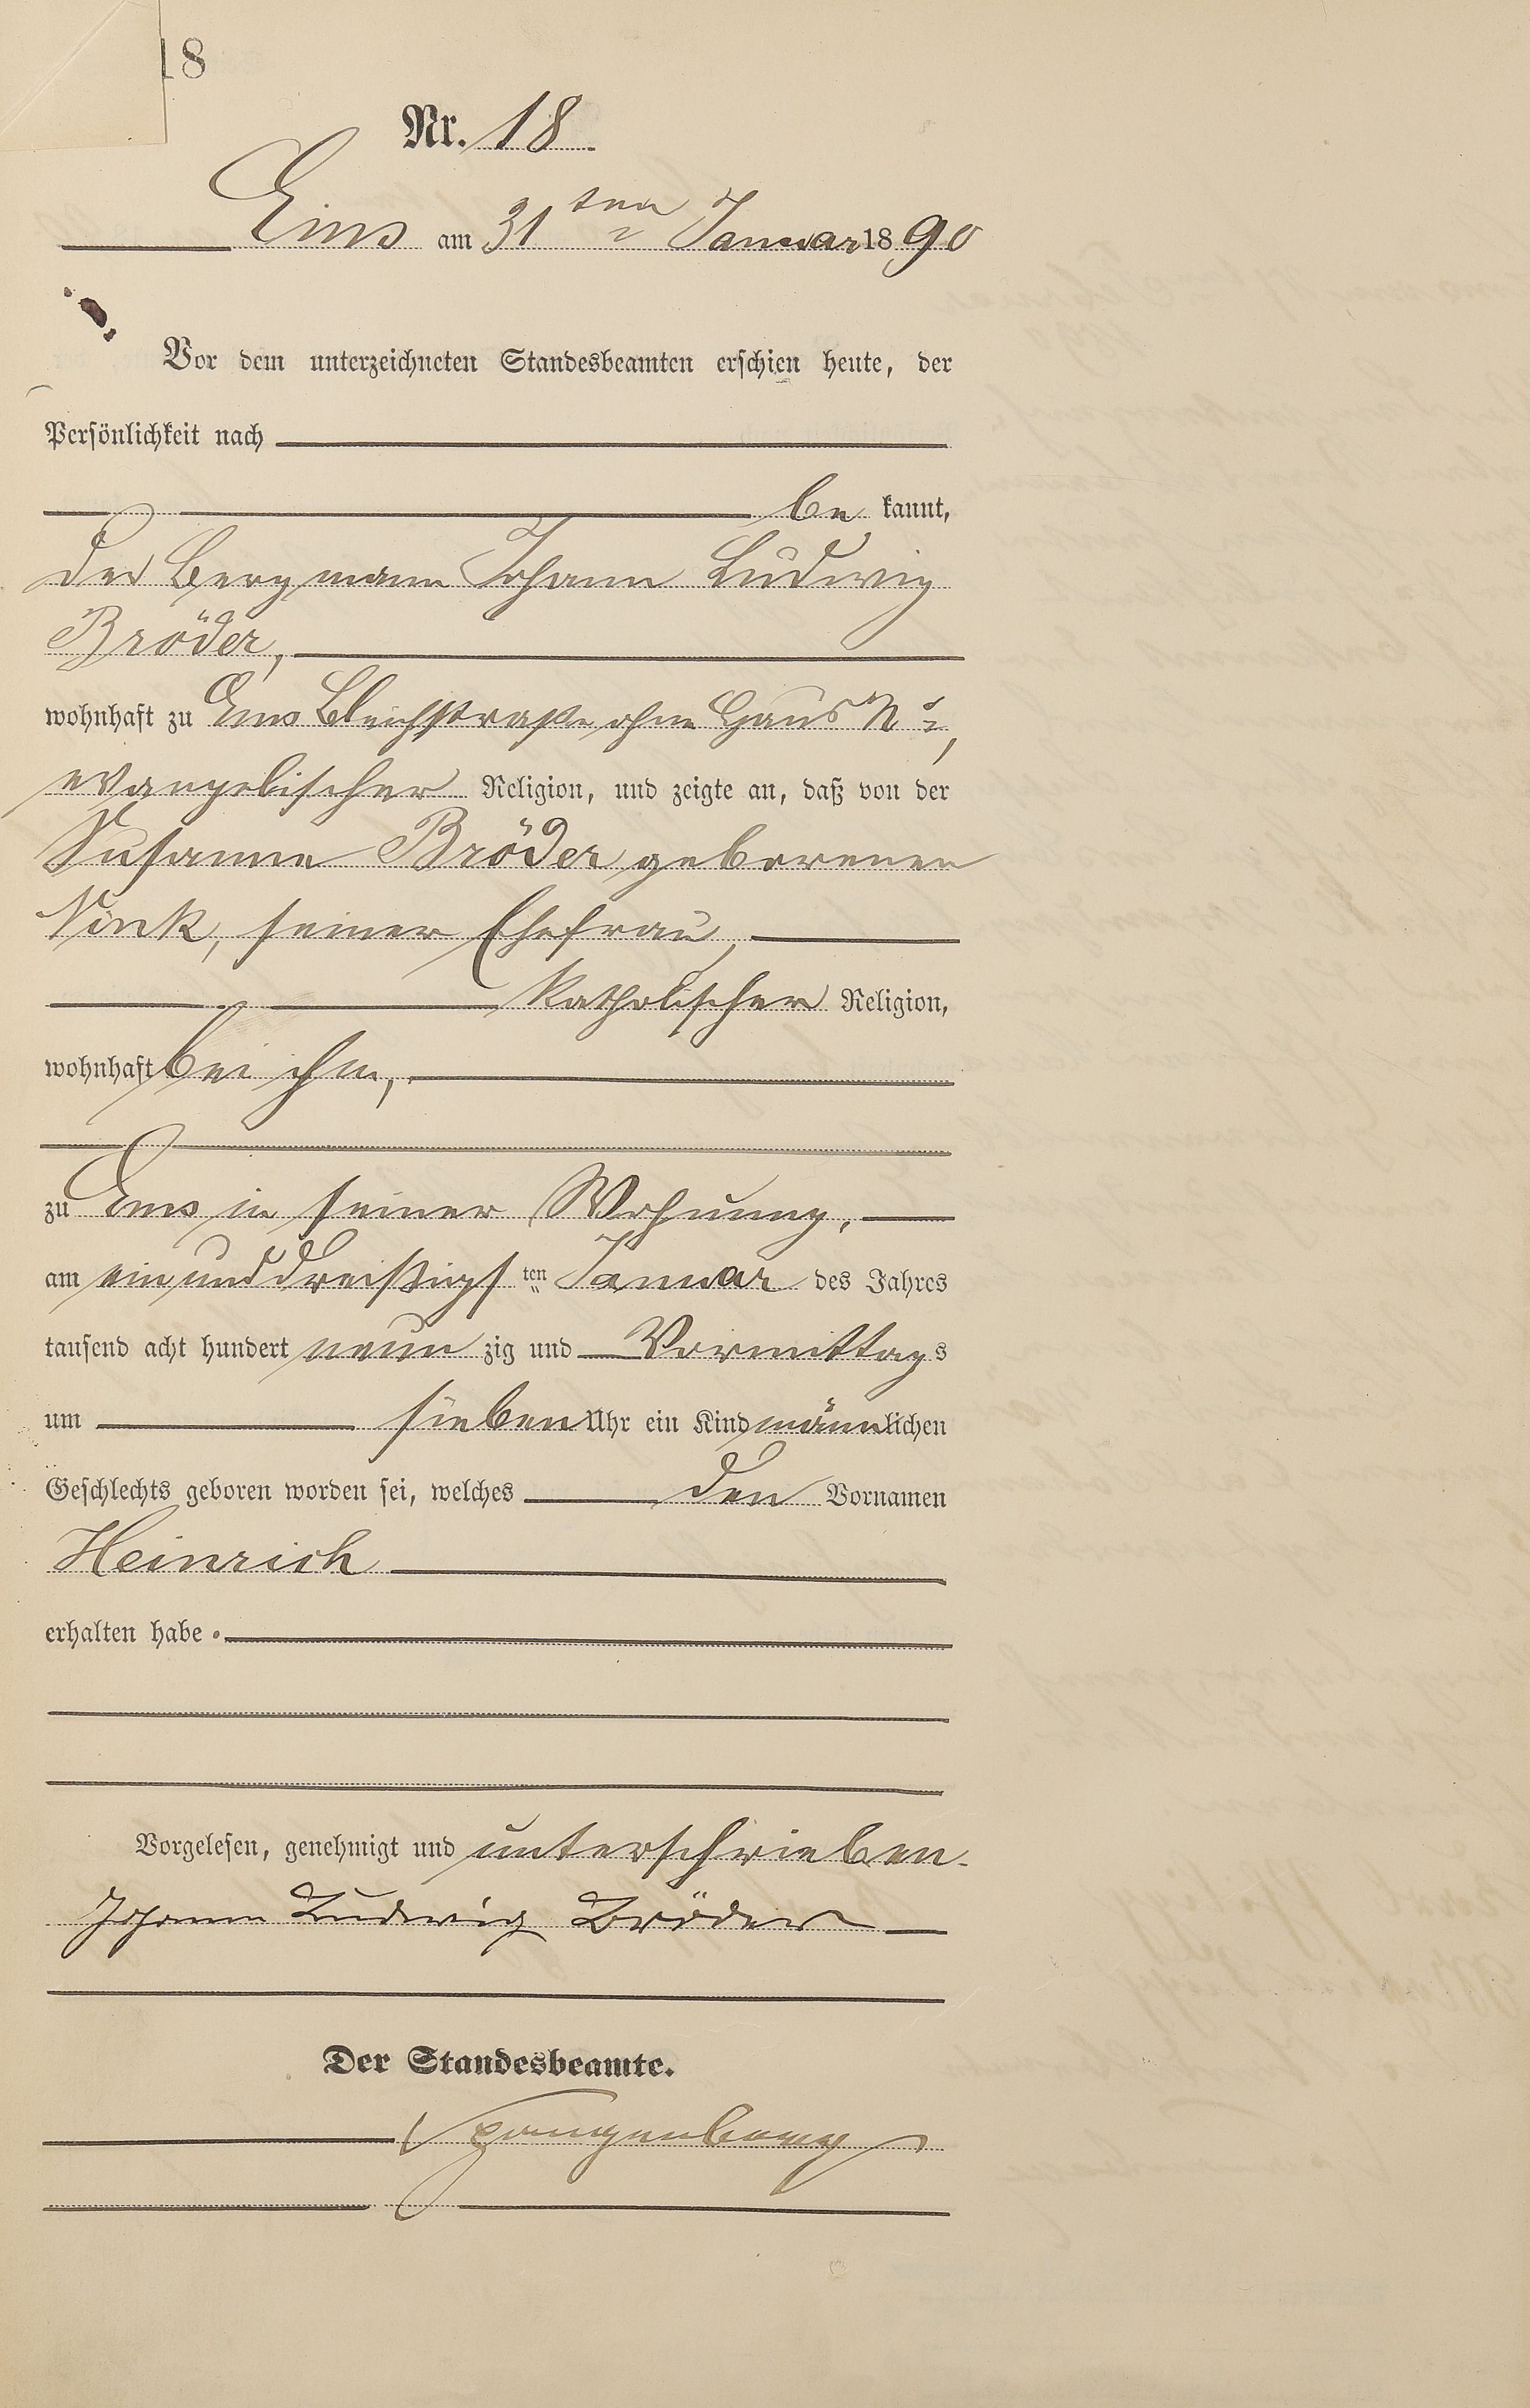 18
Nr. 18
Ems am 31ten Januar 1890
Vor dem unterzeichneten Standesbeamten erschien heute, der
Persönlichkeit nach
be kannt,
der Bergmann Johann Ludwig
Bröder,
wohnhaft zu Ems Bleichstraße ohne Haus No,
evangelischer Religion, und zeigte an, daß von der
Susanna Bröder geborenen
Fink, seiner Ehefrau,
katholischer Religion,
wohnhaft bei ihm,
zu Ems in seiner Wohnung,
am ein und dreißigsten Januar des Jahres
tausend acht hundert neun zig und Vormittags
um sieben Uhr ein Kind männlichen
Geschlechts geboren worden sei, welches den Vornamen
Heinrich
erhalten habe.
Vorgelesen, genehmigt und unterschrieben.
Johann Ludwig Bröder
Der Standesbeamte.
Spangenberg